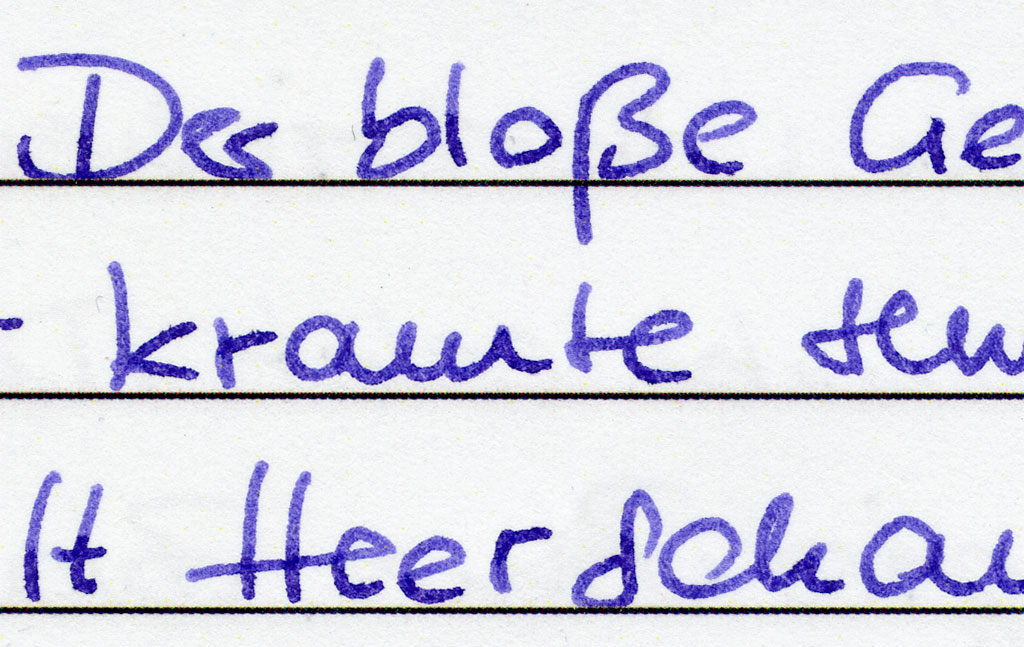 Der bloße Ge
kramte
lt Heer schau